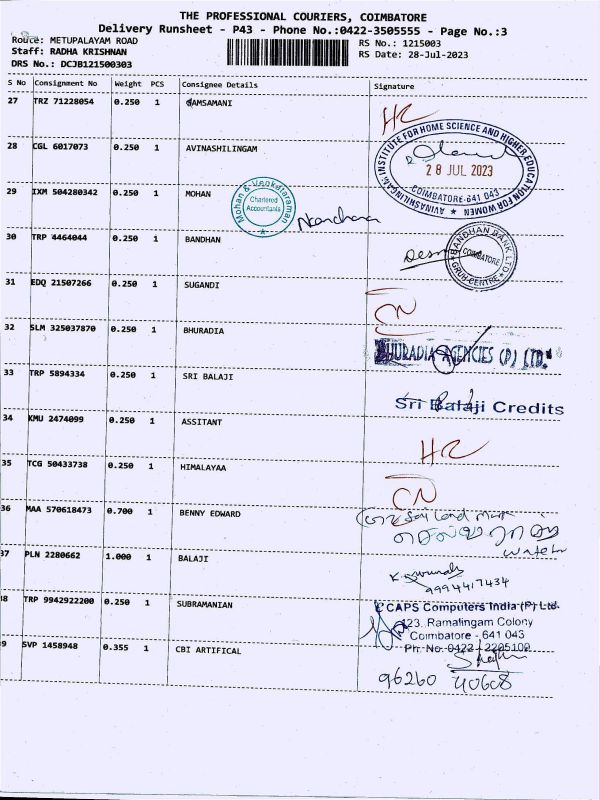 THE PROFESSIONAL COURIERS, COIMBATORE
Delivery Runsheet - P43 - Phone No.:0422-3505555 - Page No.:3
Route: METUPALAYAM ROAD
RS No.: 1215003
Staff: RADHA KRISHNAN
RS Date: 28-Jul-2023
DRS No.: DCJB121500303
S No Consignment No Weight PCS Consignee Details Signature
27 TRZ 71228054 0.250 1 DAMSAMANI
HR
28 CGL 6017073 0.250 1 AVINASHILINGAM
AVINASHILINGAM INSTITUTE FOR HOME SCIENCE AND HIGHER EDUCATION FOR WOMEN
28 JUL 2023
COIMBATORE-641 043
29 IXM 504280342 0.250 1 MOHAN
Mohan & Venkataraman
Chartered
Accountants
30 TRP 4464044 0.250 1 BANDHAN
BANDHAN BANK LTD
COIMBATORE
GRUH CENTRE
31 EDQ 21507266 0.250 1 SUGANDI
CN
32 SLM 325037870 0.250 1 BHURADIA
BHURADIA AGENCIES (P) LTD.
33 TRP 5894334 0.250 1 SRI BALAJI
Sri Balaji Credits
34 KMU 2474099 0.250 1 ASSITANT
HR
35 TCG 50433738 0.250 1 HIMALAYAA
CN
36 MAA 570618473 0.700 1 BENNY EDWARD
Land Mark
water
37 PLN 2280662 1.000 1 BALAJI
9994417434
38 TRP 9942922200 0.250 1 SUBRAMANIAN
CAPS Computers India (P) Ltd.
123, Ramalingam Colony
Coimbatore - 641 043
Ph. No. 0422 - 2205100
39 SVP 1458948 0.355 1 CBI ARTIFICAL
96260 40608